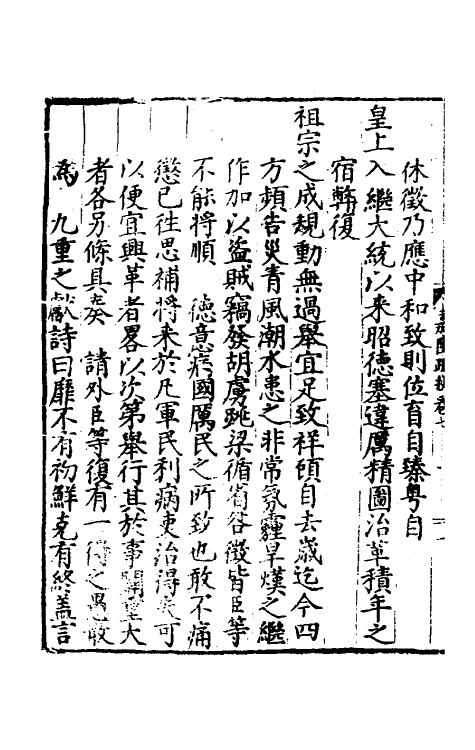 休徵乃應中和致則位育自臻粤自
皇上入繼大統以來昭德塞違厲精圖治革積年之
宿弊復
祖宗之成規動無過舉宜足致祥頋自去歲迄今四
方頻告災青風潮水患之非常氛霾旱熯之繼
作加以盜賊竊發胡虜跳梁循省咎徵皆臣等
不能將順 德意瘝國厲民之所致也敢不痛
懲已往思補將来於凡軍民利病吏治得失可
以便宜興革者畧以次第舉行其於事關重大
者各另條具奏 請外臣等復有一得之愚敢
為 九重之獻詩曰靡不有初鮮克有終盖言
卷七